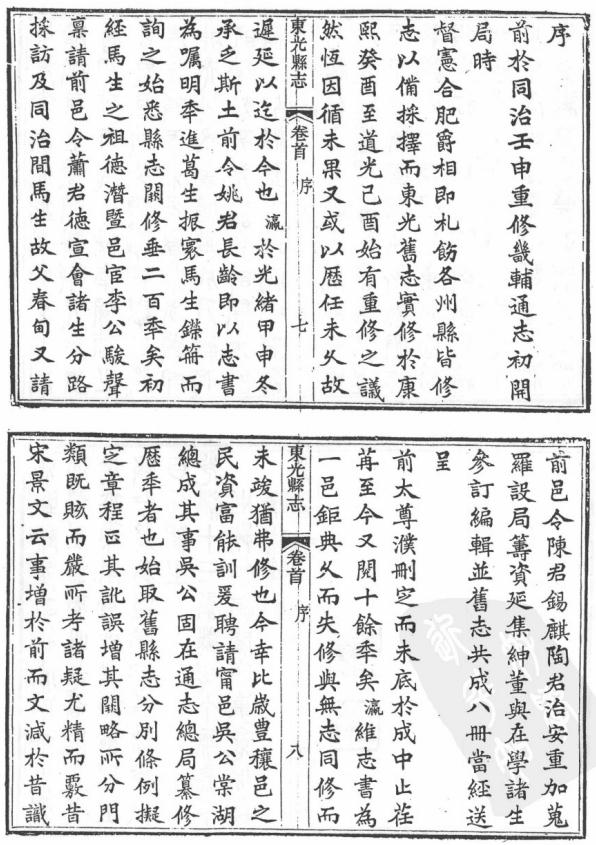 序
前於同治壬申重修畿輔通志初開
局時
督憲合肥爵相即札飭各州縣皆修
志以備採擇而東光舊志實修於康
熙癸酉至道光己酉始有重修之議
然恆因循未果又或以歴任未久故
東光縣志 卷首 序 七
遲延以迄於今也瀛於光緒甲申冬
承乏斯土前令姚君長齡即以志書
為囑明秊進葛生振寰馬生鑅箝而
詢之始悉縣志闕修垂二百秊矣初
經馬生之祖德潛暨邑宦李公駿聲
稟請前邑令蕭君德宣會諸生分路
採訪及同治間馬生故父春甸又請
前邑令陳君錫麒陶君治安重加蒐
羅設局籌資延集紳董與在學諸生
參訂編輯並舊志共成八冊當經送
呈
前太尊濮刪定而未底於成中止荏
苒至今又閱十餘秊矣瀛維志書為
一邑鉅典久而失修與無志同修而
東光縣志 卷首 序 八
未竣猶弗修也今幸比歲豐穰邑之
民資富能訓爰聘請甯邑吳公棠湖
總成其事吳公固在通志總局纂修
歴秊者也始取舊縣志分別條例擬
定章程正其訛誤增其闕略所分門
類既賅而嚴所考諸疑尤精而覈昔
宋景文云事增於前而文減於昔識